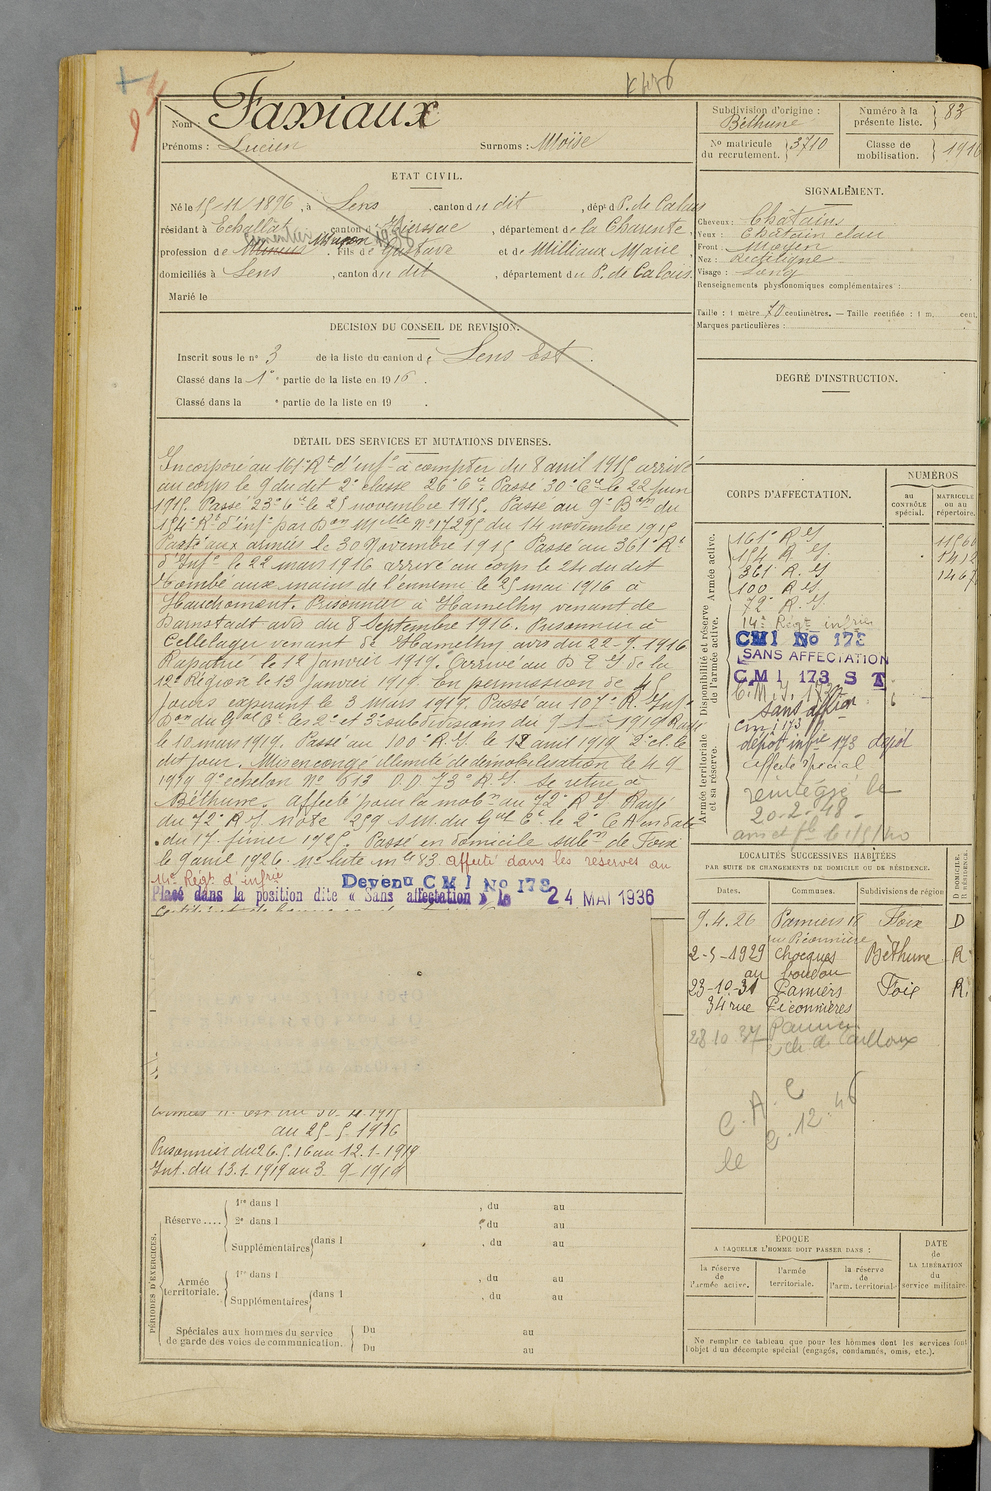 K 476
Nom : Famiaux
Prénoms : Lucien Surnoms : Moïse
ETAT CIVIL.
Né le 15/11/1896, à Lens, canton du dit, dépt d P. de Calais
résidant à Echallat, canton d Hiersac, département de la Charente,
profession de Mineur Maçon, fils de Gustave et de Millieux Marie
domiciliés à Lens, canton du dit, département du P. de Calais.
Marié le
DÉCISION DU CONSEIL DE REVISION.
Inscrit sous le n° 3 de la liste du canton de Lens Est.
Classé dans la 1e partie de la liste en 1916.
Classé dans la e partie de la liste en 19 .
DÉTAIL DES SERVICES ET MUTATIONS DIVERSES.
Incorporé au 161e Rt d'infie à compter du 8 avril 1915 arrivé
au corps le 9 du dit 2e classe 26e Cie. Passé 30e Cie le 22 juin
1915. Passé 23e Cie le 25 novembre 1915. Passé au 9e Bon du
154e Rt d'infie par Don Mlle N° 17295 du 14 novembre 1915
Parti aux armées le 30 Novembre 1915 Passé au 361e Rt
d'Infie le 22 mars 1916 arrivé au corps le 24 du dit
Tombé aux mains de l'ennemi le 25 mai 1916 à
Hauchomont. Prisonnier à Hamelhy venant de
Darnstadt avis du 8 Septembre 1916. Prisonnier à
Cellelager venant de Hamelhy avis du 22.9.1916
Rapatrié le 12 Janvier 1919. Arrivé au D T I de la
12e Région le 13 Janvier 1919. En permission de 45
jours expirant le 3 Mars 1919. Passé au 107e R. Infie
Don du Gal Ct les 2e et 3e subdivisions du 9 1919 Rayé
le 10 mars 1919. Passé au 100e R.I. le 12 avril 1919 2e cl. le
dit jour. Mis en congé illimité de démobilisation le 4 9
1919 9e échelon N° 613 D.D 73e R.I. se retire à
Béthune. affecté pour la mobon au 72e R I Rayé
du 72e R I note 259 S.M. du Gal Ct le 2e C A en date
du 17 février 1925. Passé en domicile subon de Foix
le 9 avril 1926. N° liste mle 83 affecté dans les réserves au
14e Régt d'infrie
Devenu C M I No 173
Placé dans la position dite « Sans affectation » le 24 MAI 1936
au 25-5-1916
Prisonnier du 26.5.16 au 12.1-1919
Int. du 13.1.1919 au 3-9-1919
PÉRIODES D'EXERCICES.
Réserve .... 1re dans l , du au
2e dans l , du au
Supplémentaires dans l , du au
Armée territoriale. 1re dans l , du au
Supplémentaires dans l , du au
Spéciales aux hommes du service de garde des voies de communication. Du au
Du au
Subdivision d'origine : Béthune
Numéro à la présente liste. 83
No matricule du recrutement. 3710
Classe de mobilisation. 1916
SIGNALEMENT.
Cheveux : Châtains
Yeux : Châtain clair
Front : Moyen
Nez : Rectiligne
Visage : Long
Renseignements physionomiques complémentaires :
Taille : 1 mètre 70 centimètres. — Taille rectifiée : 1 m. cent.
Marques particulières :
DEGRÉ D'INSTRUCTION.
CORPS D'AFFECTATION.
NUMÉROS
au CONTRÔLE spécial.
MATRICULE ou au répertoire.
Armée active.
Disponibilité et réserve de l'armée active.
Armée territoriale et sa réserve.
161e R I
154 R. I.
361e R. I
100 R I
72e R. I
14e Régt infrie
CMI No 173
SANS AFFECTATION
C M I 173 S T
C. M. I. 173
sans affton
cm i 173
dépôt infie 173 dépôt
affecté spécial
réintégré le
20-2-48
LOCALITÉS SUCCESSIVES HABITÉES
PAR SUITE DE CHANGEMENTS DE DOMICILE OU DE RÉSIDENCE.
Dates. Communes. Subdivisions de région D DOMICILE. R RÉSIDENCE.
9.4.26 Pamiers 18 Foix D
rue Piconnières
2-5-1929 Chocques Béthune R
au boudou
23-10-31 Pamiers Foix R.
34 rue Piconnières
28 10 37 Pamiers
C.A.C
le 2.12.46
ÉPOQUE
A LAQUELLE L'HOMME DOIT PASSER DANS :
la réserve de l'armée active.
l'armée territoriale.
la réserve de l'arm. territoriale
DATE de LA LIBÉRATION du service militaire.
Ne remplir ce tableau que pour les hommes dont les services font
l'objet d'un décompte spécial (engagés, condamnés, omis, etc.).